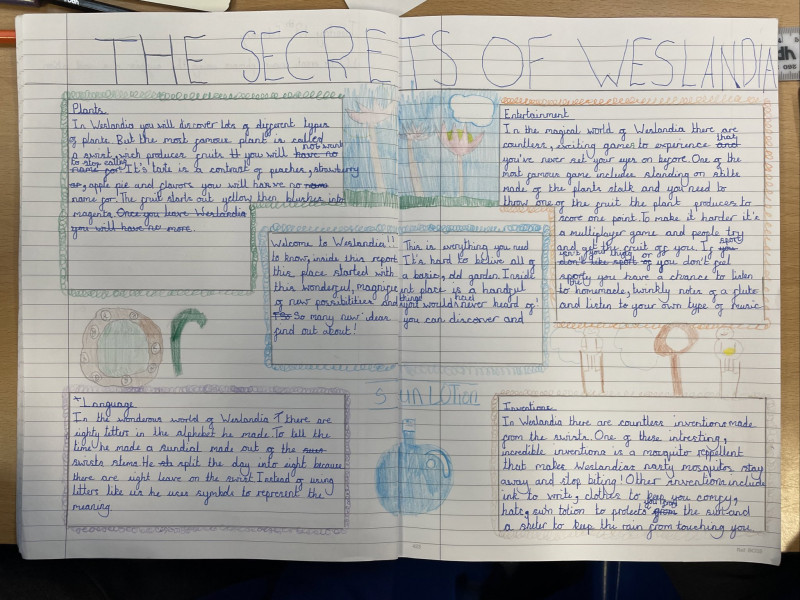 THE SECRETS OF WESLANDIA
Plants
In Weslandia you will discover lots of different types
of plants. But the most famous plant is called
a swist, wich produces fruits tt you will have no not want
to stop eating
name for. It's taste is a contrast of peaches, strawberry
or, apple pie and flavors you will have no nam
name for. The fruit starts out yellow then blushes into
magenta. Once you leave Weslandia
you will have no more.
Entertainment
In the magical world of Weslandia there are
countless, exciting games to experience and that
you've never set your eyes on before. One of the
most famous game includes standing on stilts
made of the plants stalk and you need to
throw one of the fruit the plant produces to
score one point. To make it harder it's
a multiplayer game and people try
and get the fruit off you. If you sport
isn't your thing or
don't like sport or you don't feel
sporty you have a chance to listen
to homemade, twinkly notes of a flute
and listen to your own type of music
Welcome to Weslandia!! This is everything you need
to know, inside this report It's hard to belive all of
this place started with a basic, old garden. Inside
this wonderful, magnificent place is a handful
of new possibilities and things that world's never heard of!
So many new ideas you can discover and
find out about!
Language
In the wonderous world of Weslandia there are
eighty letters in the alphabet he made. To tell the
time he made a sundial made out of the
swists stems. He split the day into eight because
there are eight leave on the swist. Instead of using
letters like us he uses symbols to represent the
meaning.
SUN LOTION
Inventions
In Weslandia there are countless inventions made
from the swists. One of these intresting,
incredible inventions is a mosquito repellent
that makes Weslandias nasty mosquitos stay
away and stop biting! Other inventions include
ink to write, clothes to keep you comfy,
hats, sun lotion to protects you from the sun and
a shelter to keep the rain from touching you